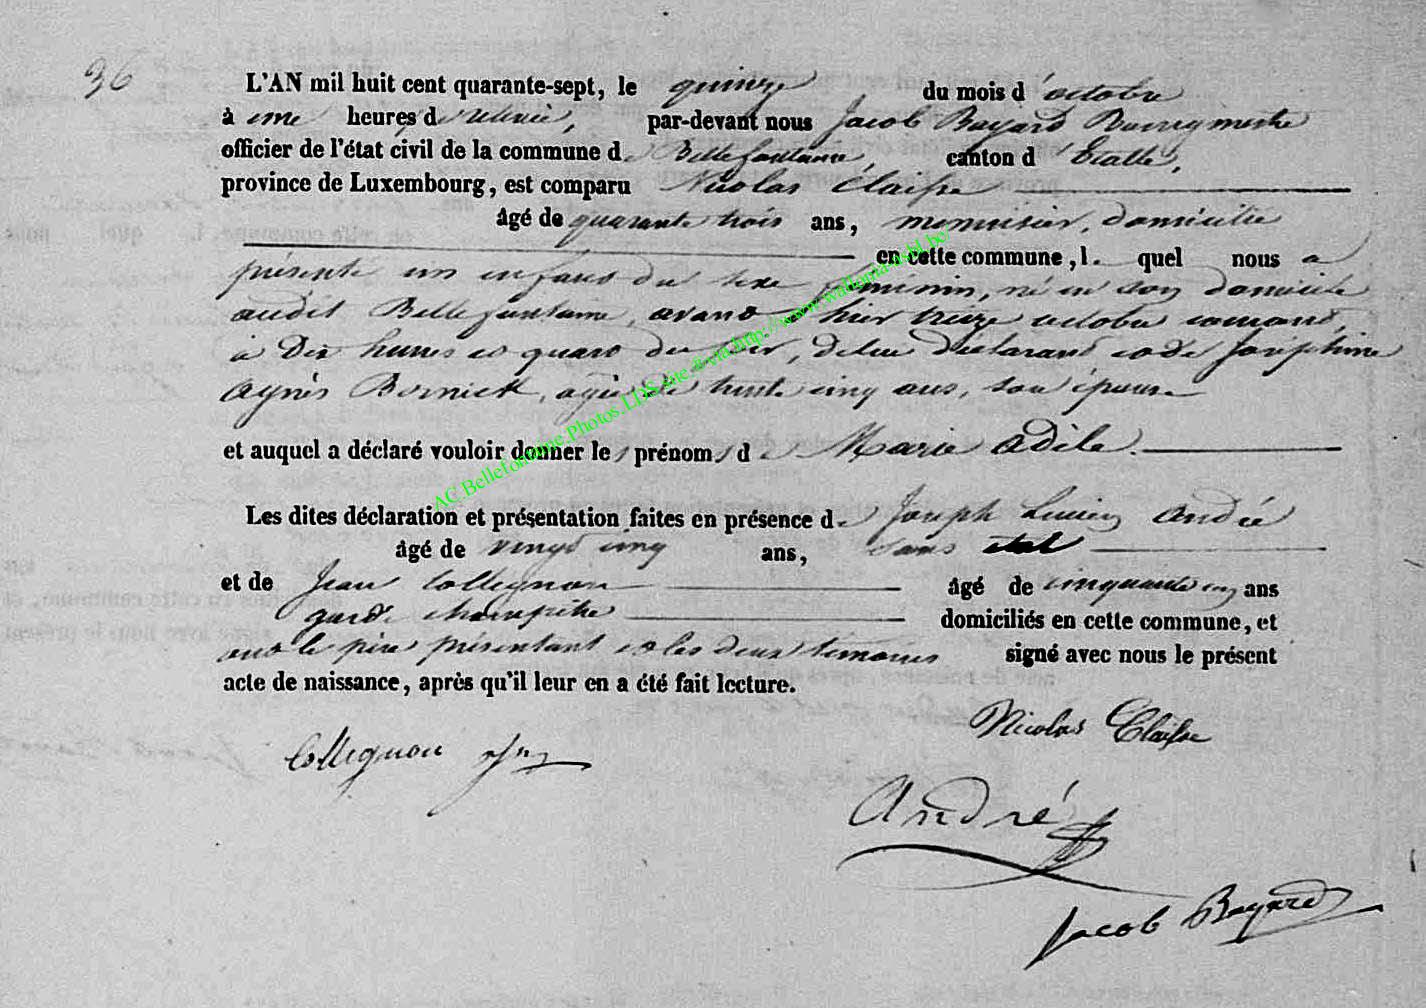 36
L'AN mil huit cent quarante-sept, le quinze du mois d'octobre
à une heures de relevée, par-devant nous Jacob Bayard Bourgmestre
officier de l'état civil de la commune de Bellefontaine, canton d'Etalle,
province de Luxembourg, est comparu Nicolas Claisse
âgé de quarante trois ans, menuisier, domicilié
en cette commune, l. quel nous a
présenté un enfant du sexe féminin, né en son domicile
audit Bellefontaine, avant hier treize octobre courant,
à Dix heures et quart du soir, de lui déclarant et de Joséphine
Agnès Bornick, agée de trente cinq ans, son épouse
et auquel a déclaré vouloir donner les prénoms de Marie Adèle.
Les dites déclaration et présentation faites en présence de Joseph Lucien André
âgé de vingt cinq ans, sans état
et de Jean Collignon âgé de cinquante ans
garde champêtre domiciliés en cette commune, et
ont le père présentant et les deux témoins signé avec nous le présent
acte de naissance, après qu'il leur en a été fait lecture.
Nicolas Claisse
Collignon
André
Jacob Bayard
AC.Bellefontaine.Photos.LDS.site.®via.http://www.wallonia-asbl.be/